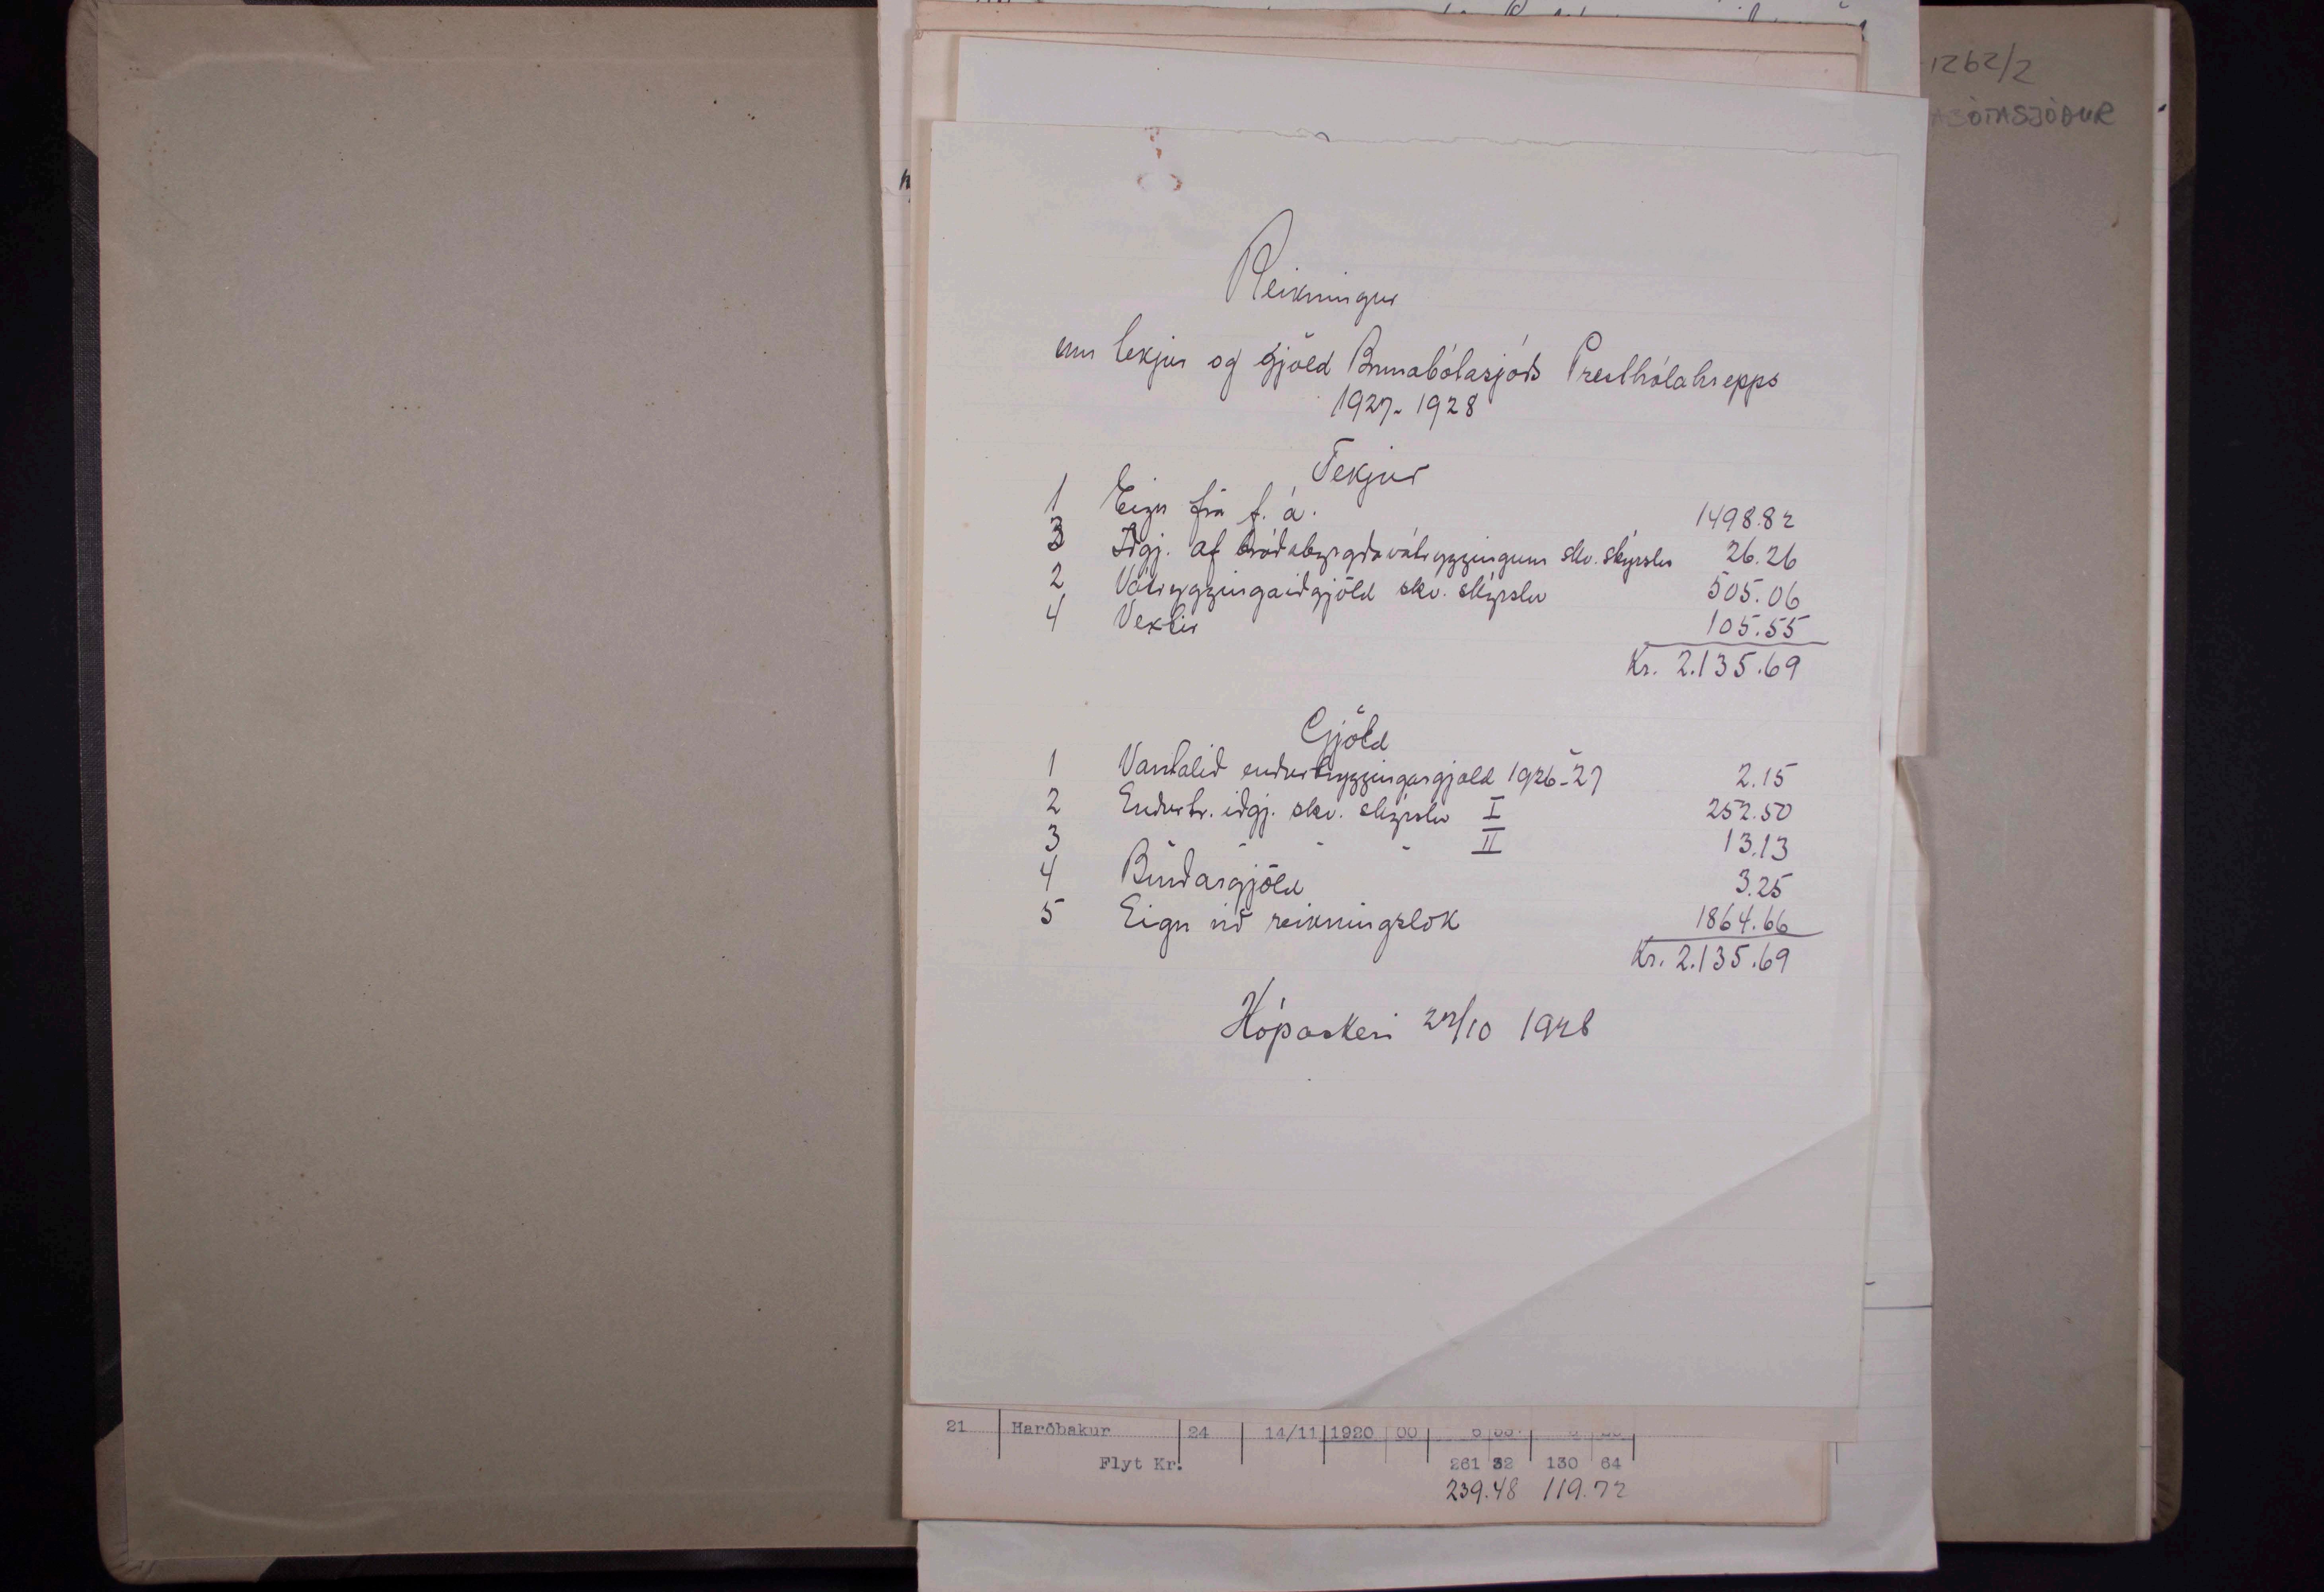 1262/2
ASÓTASJÓÐUR
Reikningur
um tekjur og gjöld Brunabótasjóðs Presthólahrepps
1927-1928
Tekjur
1 Eign frá f. á. 1498.82
3 Iðgj. af bráðabyrgðavátryggingum skv. skýrslu 26.26
2 Vátryggingaiðgjöld skv. skýrslu 505.06
4 Vextir 105.55
Kr. 2.135.69
Gjöld
1 Vantalið endurtryggingargjald 1926-27 2.15
2 Endurtr. iðgj. skv. skýrslu I 252.50
3 - - - II 13.13
4 Burðargjöld 3.25
5 Eign við reikningslok 1864.66
Kr. 2.135.69
Kópaskeri 27/10 1928
21 Harðbakur 24 14/11 1920 00
Flyt Kr. 261 32 130 64
239.48 119.72